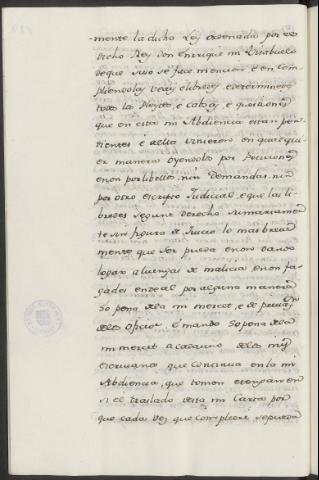 mente la dicho Ley ordenada por el
dicho Rey Don Enrique mi Visabuelo
de que suso se face mencion é en com
pliendola veais é libreis é determineis
todos los Pleytos, é casos, é questiones
que en esta mi Abdiencia estan pen
dientes é á ella vinieren en qualqui
er manera oyendolos por Peticiones
é non por libellos, nin Demandas, nin
por otro escripto Judicial, é que las li
bredes segunt derecho sumariamen
te sin figura de Juicio lo mas breve
mente que ser pueda en non dando
logar á luengas de malicia é non fa
gades ende al por alguna manera
so pena de la mi merced, é de privacion
de los oficios é mando so pena de la
mi merced á cada uno de los mis
Escrivanos que continua en la mi
Abdiencia, que tomen é pongan en
si el traslado desta mi Carta por
que cada vez que compliere sepueda